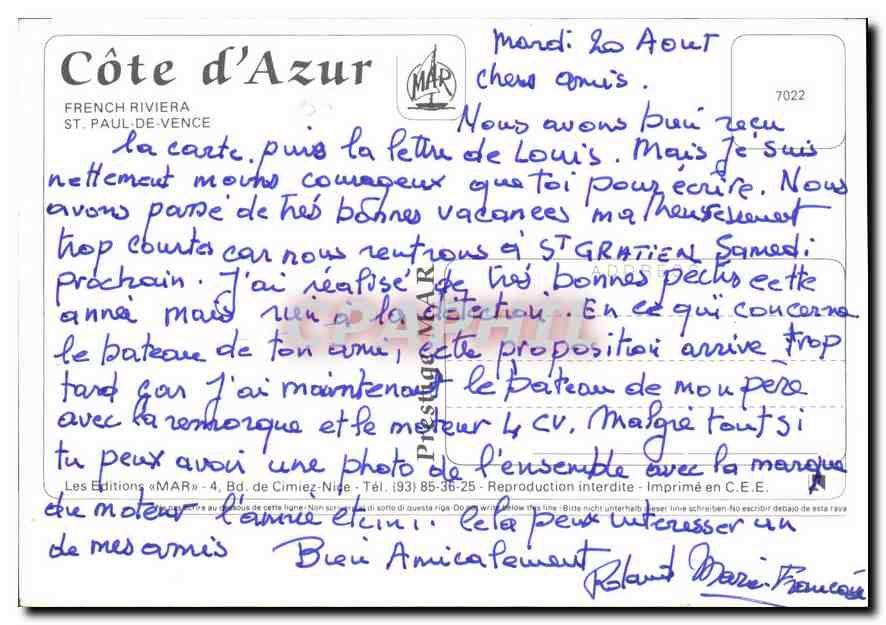 Côte d'Azur
FRENCH RIVIERA
ST. PAUL-DE-VENCE
MAR
7022
Mardi 20 Aout
chers amis.
Nous avons bien reçu
la carte, puis la lettre de Louis. Mais je suis
nettement moins courageux que toi pour écrire. Nous
avons passé de très bonnes vacances malheureusement
trop courtes car nous rentrons à ST GRATIEN Samedi
prochain. J'ai réalisé de très bonnes pechs cette
année mais rien à la détection. En ce qui concerne
le bateau de ton ami, cette proposition arrive trop
tard car j'ai maintenant le bateau de mon père
avec la remorque et le moteur 4 CV. Malgré tout si
tu peux avoir une photo de l'ensemble avec la marque
du moteur l'année etc... Cela peux interesser un
de mes amis Bien Amicalement
Roland Marie-Françoise
ADDRESS
CPAPHIL
Prestige MAR
Les Editions «MAR» - 4, Bd. de Cimiez-Nice - Tél. (93) 85-36-25 - Reproduction interdite - Imprimé en C.E.E.
écrire au dessous de cette ligne - Non scrivere al di sotto di questa riga - Do not write below this line - Bitte nicht unterhalb dieser linie schreiben - No escribir debajo de esta raya